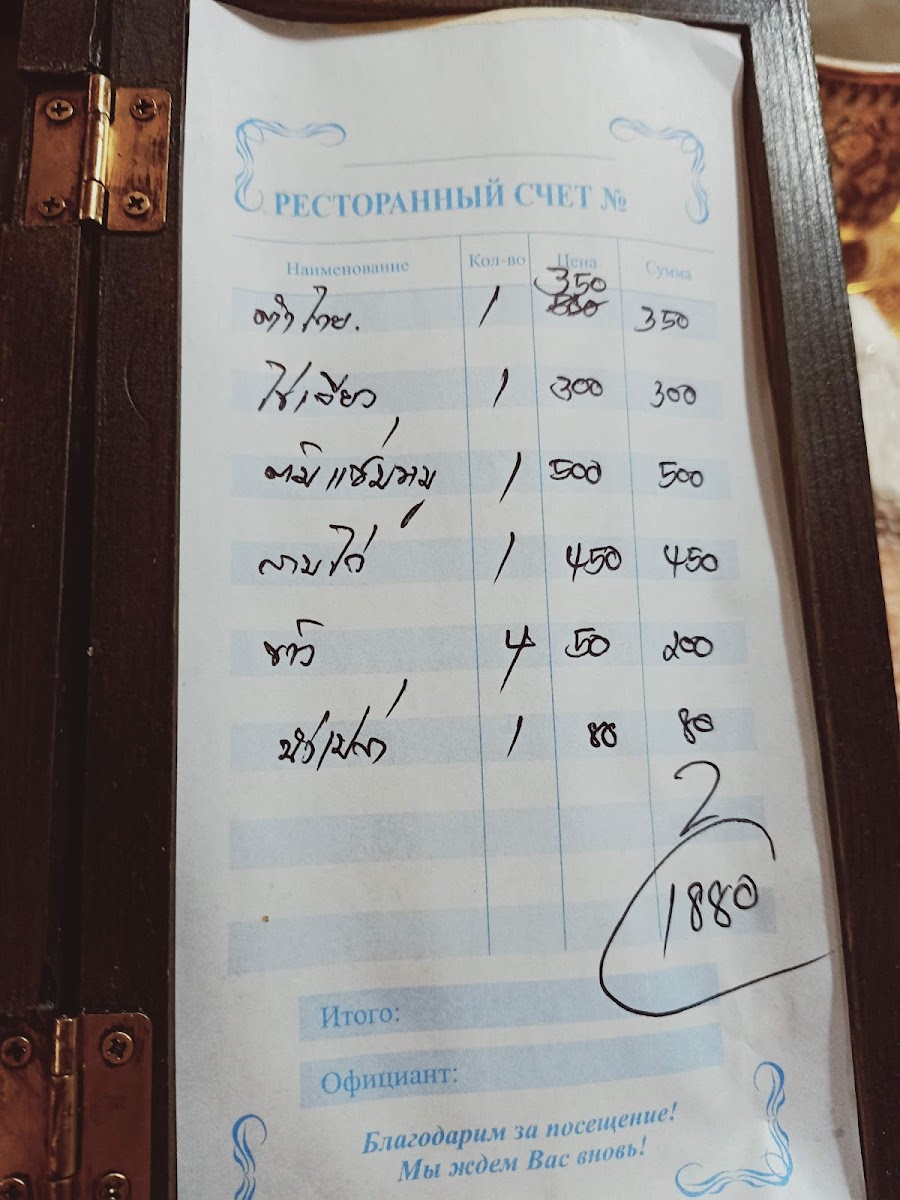 РЕСТОРАННЫЙ СЧЕТ №
Наименование Кол-во Цена Сумма
ตำไทย. 1 350 350
ไข่เจียว 1 300 300
ต้มแซ่บหมู 1 500 500
ลาบไก่ 1 450 450
ข้าว 4 50 200
น้ำเปล่า 1 80 80
2
1880
Итого:
Официант:
Благодарим за посещение!
Мы ждем Вас вновь!